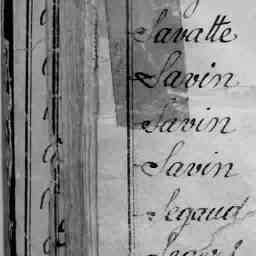 Savatte
Savin
Savin
Savin
Segaud